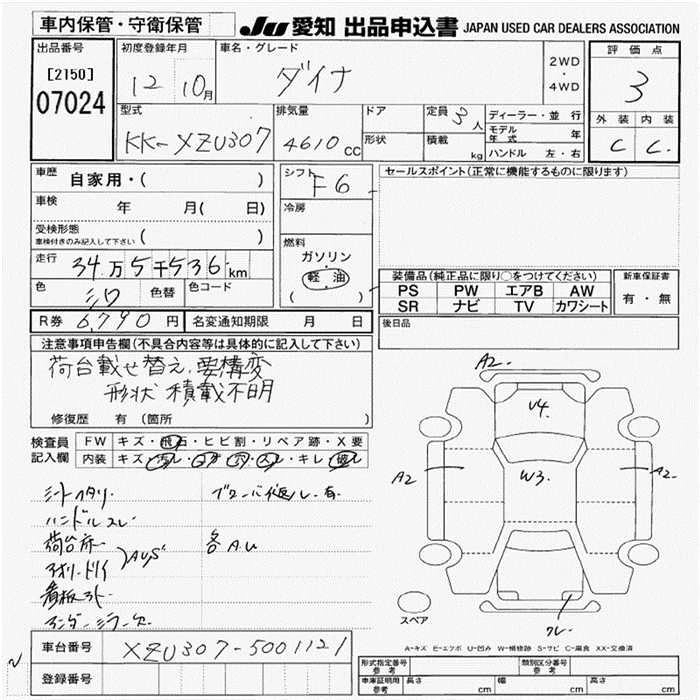 車内保管・守衛保管
JU 愛知 出品申込書 JAPAN USED CAR DEALERS ASSOCIATION
出品番号
[2150]
07024
初度登録年月
12 10月
車名・グレード
ダイナ
2WD
・
4WD
評価点
3
外装 内装
C C
型式
KK-XZU307
排気量
4610 cc
ドア
形状
定員 3人
積載 kg
ディーラー・並行
モデル年式 年
ハンドル 左・右
車歴 自家用・( )
車検 年 月( 日)
受検形態
車検付きのみ記入して下さい ( )
走行 34万5千536km
色 シロ 色替 色コード
R券 6,790 円 名変通知期限 月 日
シフト F6
冷房
燃料
ガソリン
軽油
( )
セールスポイント(正常に機能するものに限ります)
装備品(純正品に限り○をつけてください)
PS PW エアB AW
SR ナビ TV カワシート
新車保証書
有・無
後日品
注意事項申告欄(不具合内容等は具体的に記入して下さい)
荷台載せ替え、要構変
形状 積載不明
修復歴 有 (箇所 )
検査員記入欄
FW キズ・飛石・ヒビ割・リペア跡・X要
内装 キズ・汚レ・コゲ・穴・スレ・キレ・破レ
シートヘタリ
ハンドルスレ
荷台床
アオリ・トリイ
看板ストー
アンダーミラー欠
各A.U
A2
V4
W3
A2
A2
スペア
クレ
A-キズ E-エクボ U-凹み W-補修跡 S-サビ C-腐食 XX-交換済
車台番号 XZU307-5001121
登録番号
形式指定番号
参考
類別区分番号
参考
車庫証明用
参考
長さ cm
幅 cm
高さ cm